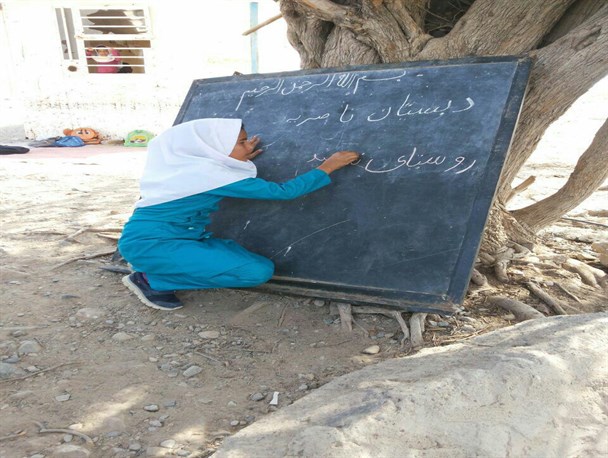 بسم الله الرحمن الرحیم
دبستان ناصریه
روستای